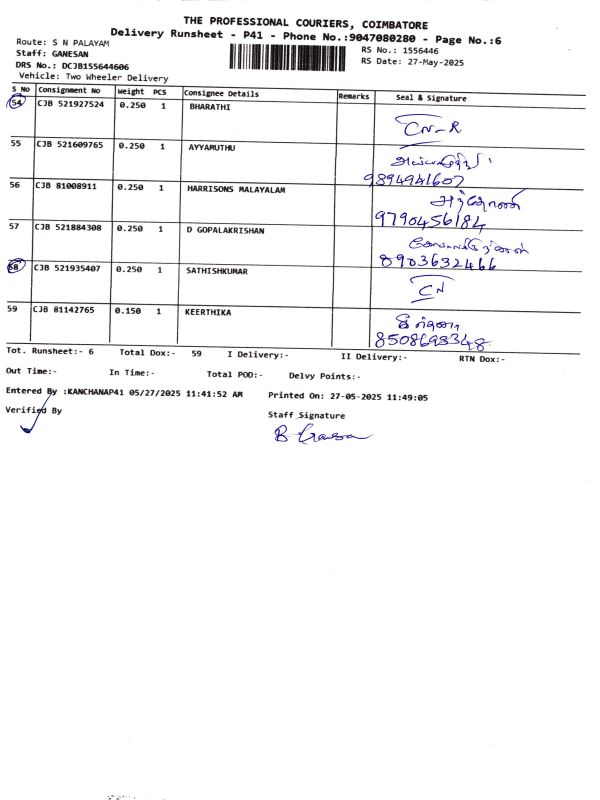 THE PROFESSIONAL COURIERS, COIMBATORE
Delivery Runsheet - P41 - Phone No.:9047080280 - Page No.:6
Route: S N PALAYAM
RS No.: 1556446
Staff: GANESAN
RS Date: 27-May-2025
DRS No.: DCJB155644606
Vehicle: Two Wheeler Delivery
S No Consignment No Weight PCS Consignee Details Remarks Seal & Signature
54 CJB 521927524 0.250 1 BHARATHI CN-R
55 CJB 521609765 0.250 1 AYYAMUTHU
9894941607
56 CJB 81008911 0.250 1 HARRISONS MALAYALAM
9790456184
57 CJB 521884308 0.250 1 D GOPALAKRISHAN
8903632466
58 CJB 521935407 0.250 1 SATHISHKUMAR CN
59 CJB 81142765 0.150 1 KEERTHIKA
8508693348
Tot. Runsheet:- 6 Total Dox:- 59 I Delivery:- II Delivery:- RTN Dox:-
Out Time:- In Time:- Total POD:- Delvy Points:-
Entered By :KANCHANAP41 05/27/2025 11:41:52 AM Printed On: 27-05-2025 11:49:05
Verified By Staff Signature